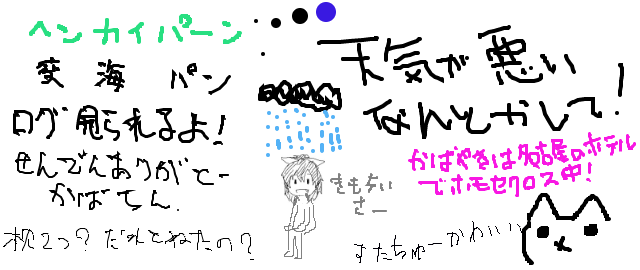 ヘンカイパーン
変 海 パン
ログ見られるよ!
せんでんありがとー
かばちん.
枕2つ?だれとねたの?
天気が悪い
なんとかして!
かばやきは名古屋のホテル
でホモセクロス中!
きもちい
さー
すたちゅーかわいい